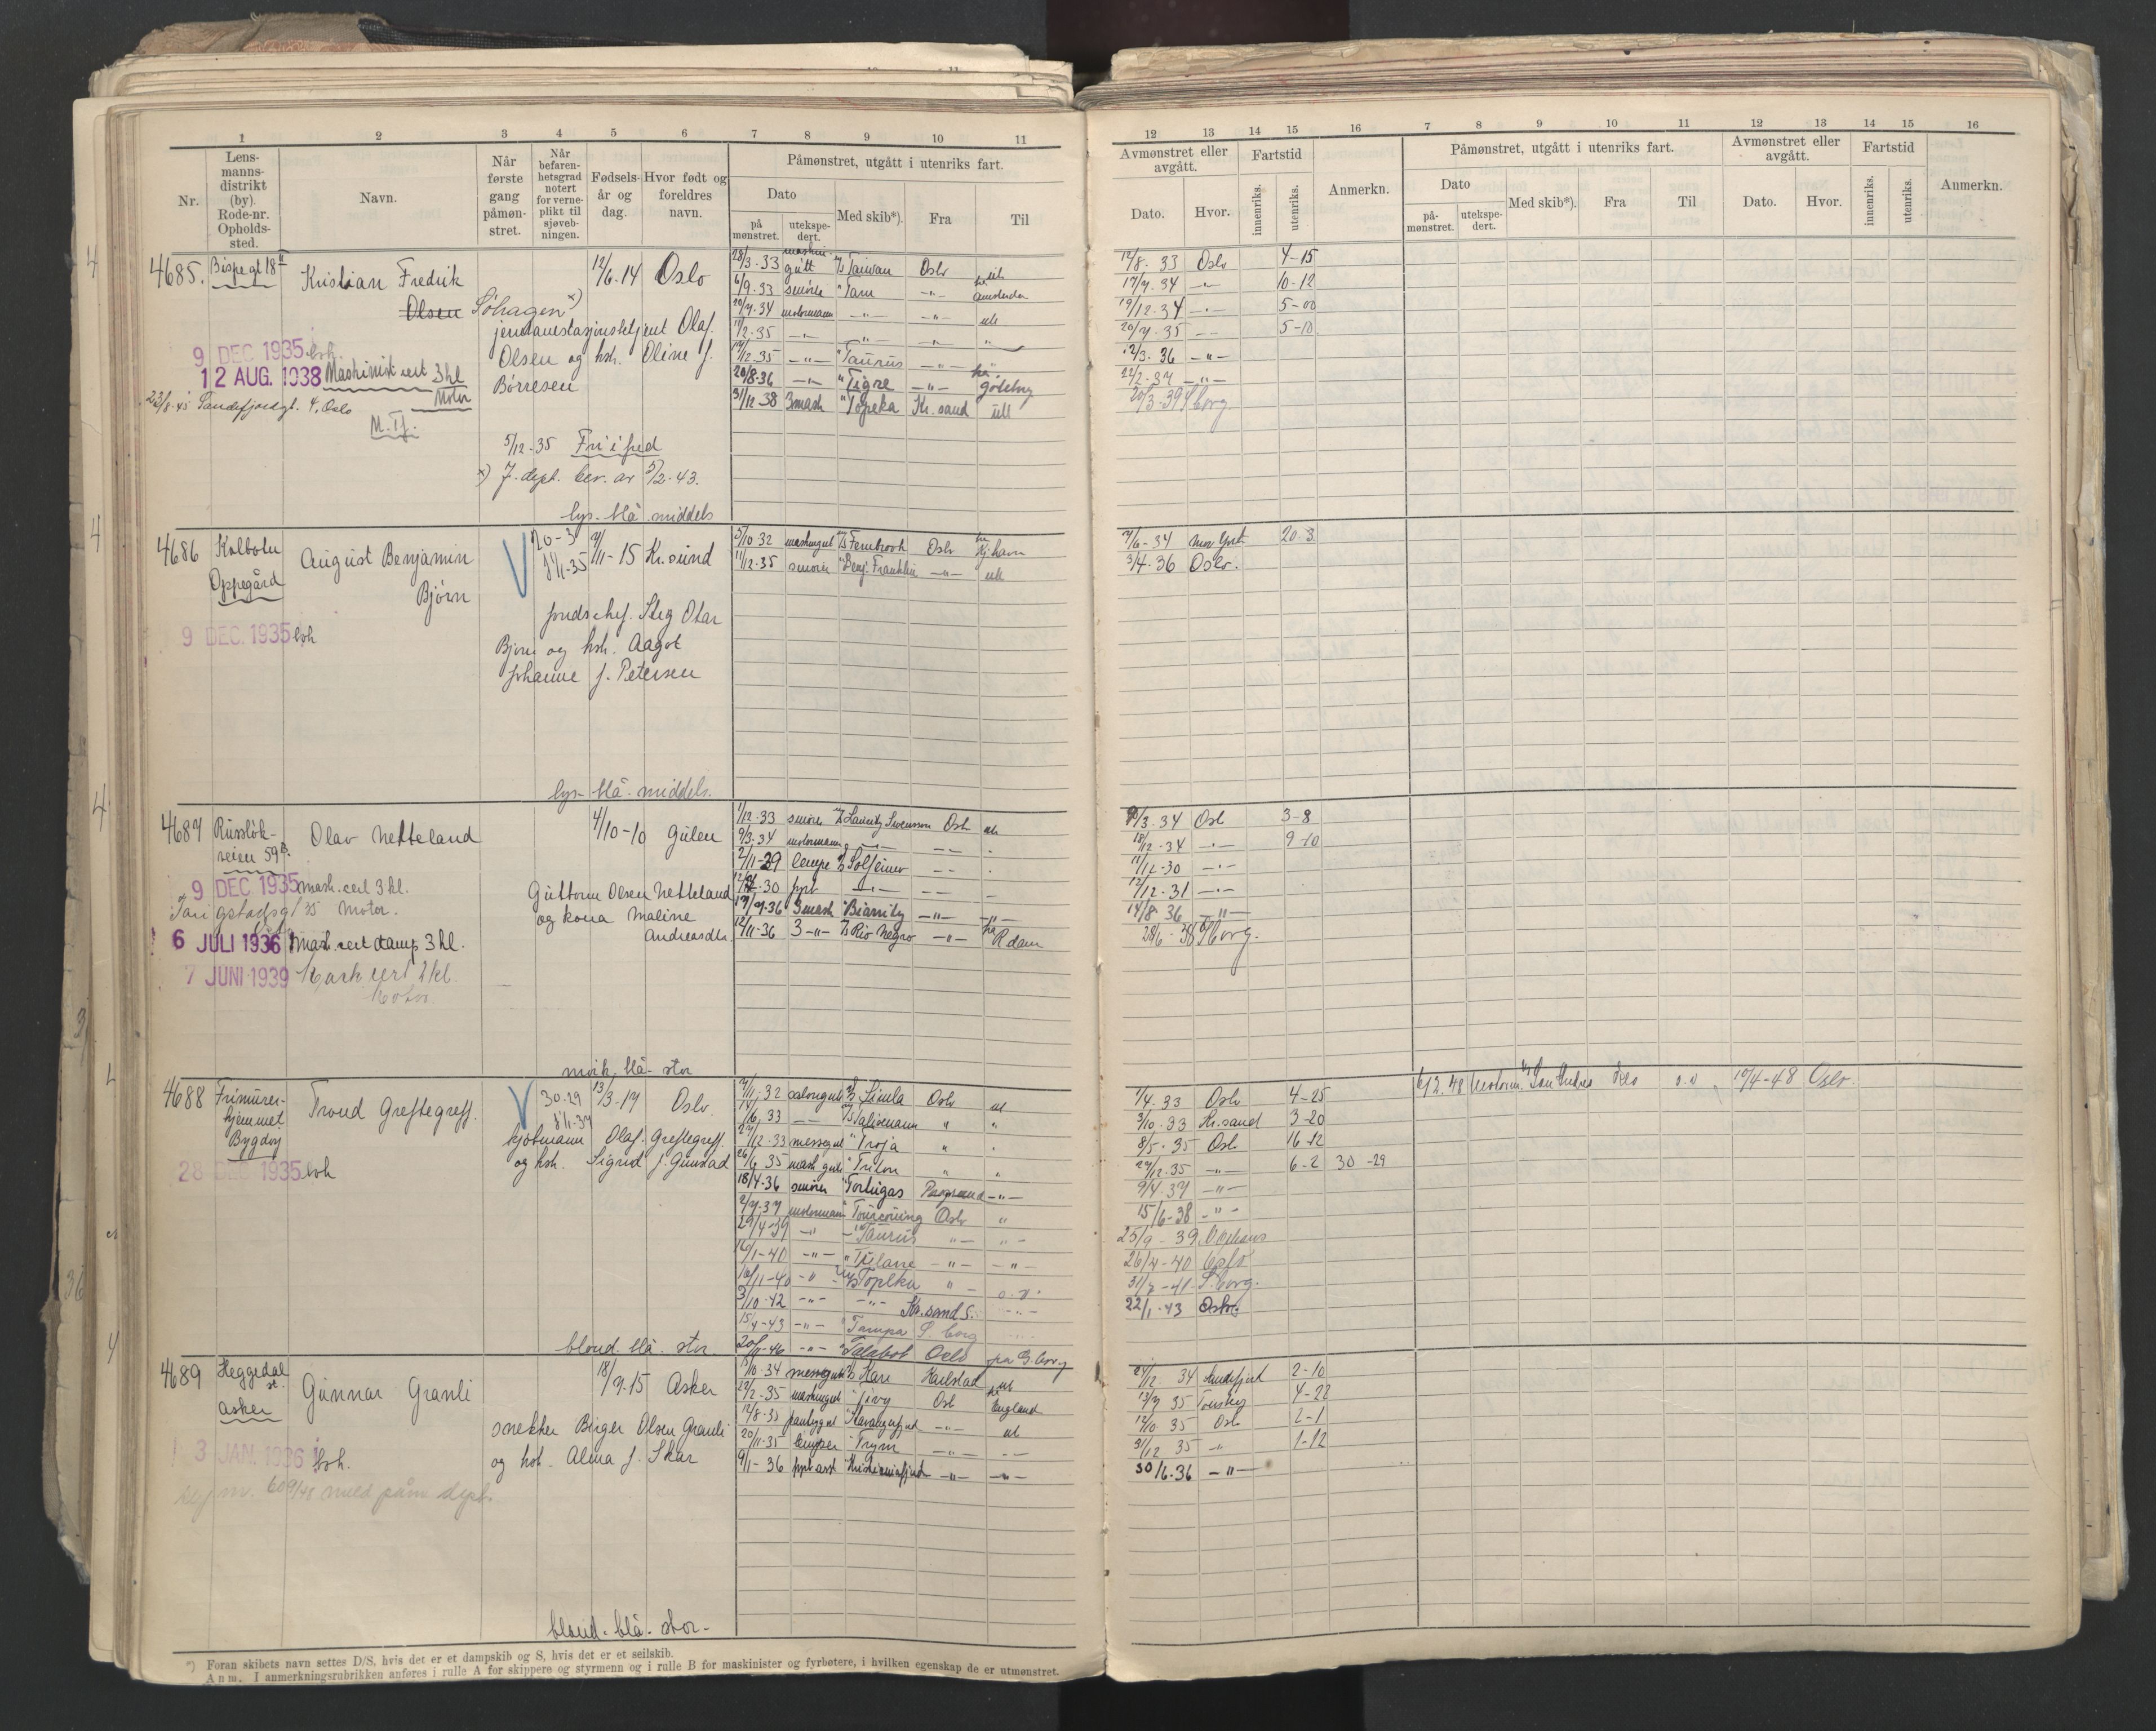 1 2 3 4 5 6 7 8 9 10 11
Nr.
Lens-
manns-
distrikt
(by).
Rode-nr.
Opholds-
sted.
Navn.
Når
første
gang
påmøn-
stret.
Når
befaren-
hetsgrad
notert
for verne-
plikt til
sjøveb-
ningen.
Fødsels-
år og
dag.
Hvor født og
foreldres
navn.
Påmønstret, utgått i utenriks fart.
Dato
på
mønstret.
utekspe-
dert.
Med skib*).
Fra
Til
4685. Bispegt 18 II Kristian Fredrik 12/6.14 Oslo
Olsen Söhagen x)
jernbanestasjonsbetjent Olaf
Olsen og hsh. Oline f.
Börresen
9 DEC 1935
12 AUG. 1938 Maskinist cert 3 kl
Motor
23/8.45 Sandefjordgt. 4, Oslo
5/12-35 Fri i fred
x) J. dept. bev. av 5/2.43.
lys-blå middels
28/3.33 maskin-
gutt M/S Taiwan Oslo
6/9.33 smörer " Tam -"- Amsterdam
20/7.34 motormann -"- -"- utl
11/2.35 -"- -"- -"- "
19/12.35 -"- " Taurus -"-
20/8-36 -"- " Tigre -"- Göteborg
31/12 38 3mask " Topeka Kr.sand utl
4686 Kolbotn August Benjamin 20-3 7/11-15 Kr.sund
Oppegård Bjørn 1/1-35
9 DEC. 1935
Bjørn og hsh. Aagot
Johanne f. Petersen
lys-blå-middels.
5/10.32 maskingut M/S Fernbrook Oslo Kj.havn
11/12.35 smörer " Benj. Franklin -"- utl
4687 Russløk- Olav Netteland 4/10-10 Gulen
veien 59 B.
9 DEC 1935 mask.cert 3 kl.
Motor.
Guttorm Olsen Netteland
og kona Maline
Andreasdtr.
6 JULI 1936 Mask cert damp 3 kl.
7 JUNI 1939 Mask cert 2 kl.
Motor.
mörk. blå- stor
1/12.33 smörer M/S Lauritz Swensson Oslo utl
9/3.34 motormann -"-
7/11-29 lempe Solfeimer
12/12-30 fyrb -"-
17/7.36 3mask " Biarritz -"- -"-
12/11-36 3 -"- M/S Rio Negro -"- R.dam
4688 Frimurer- Trond Greftegreff. 30-29 13/3-17 Oslo.
hjemmet 1/1-37
Bygdøy kjøbmann Olaf Greftegreff.
og hsh. Sigrid f. Gunstad
28 DEC 1935
blond. blå. stor.
7/11.32 salongut M/S Simla Oslo utl
14/6.33 M/S Talisman " "
27/12.33 messegut " Troja "
26/6 35 mask gut " Triton " "
18/4-36 smörer " Tortugas Porsgrund -"-
2/7.37 motormann " Tourcoing Oslo "
29/4-39 -"- " Taurus -"- -"-
16/1-40 -"- " Titania -"- -"-
16/11-40 -"- M/S Topeka "
3/10-42 -"- -"- Kr.sand S.
15/4-43 -"- " Tampa S.borg
20/11-46 -"- " Talabot Oslo på G.borg
4689 Heggedal Gunnar Granli 18/9.15 Asker
st.
Asker snekker Birger Olsen Granli
og hsh. Alma f. Skar
3 JAN. 1936
blond. blå. stor-
13/10.34 messegut Kari Karlstad utl
22/2-35 maskingut " Oslo England
12/8-35 pantrygut " Stavangerfjord -"- utl
20/11-35 lemper " Trym -"-
9/1-36 fyrb.asst Kristianiafjord -"- -"-
*) Foran skibets navn settes D/S, hvis det er et dampskib og S, hvis det er et seilskib.
Anm. I anmerkningsrubrikken anføres i rulle A for skippere og styrmenn og i rulle B for maskinister og fyrbøtere, i hvilken egenskap de er utmønstret.
12 13 14 15 16 7 8 9 10 11 12 13 14 15 16
Avmønstret eller
avgått.
Dato.
Hvor.
Fartstid
innenriks.
utenriks.
Anmerkn.
Påmønstret, utgått i utenriks fart.
Dato
på-
mønstret.
utekspe-
dert.
Med skib*).
Fra
Til
Avmønstret eller
avgått.
Dato.
Hvor.
Fartstid
innenriks.
utenriks.
Anmerkn.
12/8. 33 Oslo 4-15
17/7.34 -"- 10-12
19/12.34 -"- 5-00
20/7.35 -"- 5-10
12/3. 36 -"-
22/2-37 -"-
20/3.39 S.borg
7/6-34 New York 20.3
3/4.36 Oslo.
8/3.34 Oslo 3-8
18/12-34 -"- 9-10
11/12-30 -"-
12/12-31 -"-
14/8. 36 -"-
28/6-38 S.borg.
1/4.33 Oslo 4-25
3/10.33 Kr.sand 3-20
8/5. 35 Oslo 16-12
29/12.35 -"- 6-2 30-29
9/4.37 -"-
15/6-38 -"-
25/9-39
26/4-40 Oslo
31/7-41 S.borg.
22/1-43 Oslo
6/2.48 Motorm. Oslo 10/4-48 Oslo.
24/12. 34 Sandefjord 2-10
13/7 35 Tönsberg 4-22
12/10 35 Oslo 2-1
31/12 35 " 1-12
30/6.36 -"-